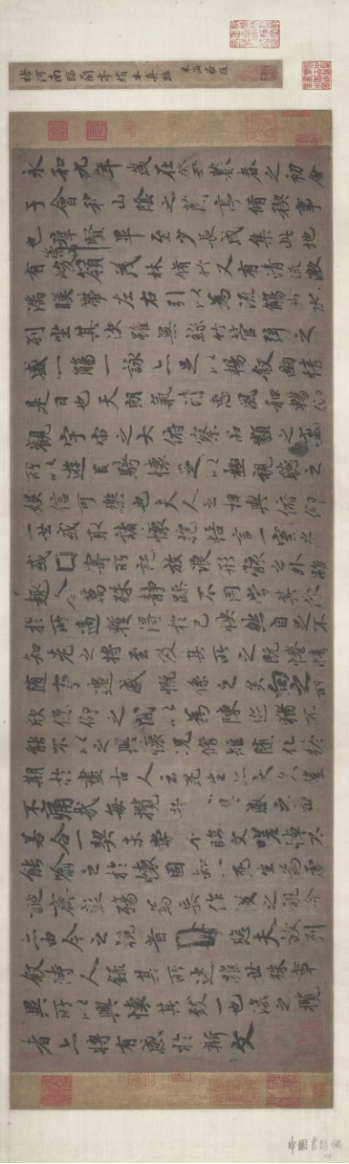 褚河南臨蘭亭絹本真跡
永和九年歲在癸丑暮春之初會
于會稽山陰之蘭亭脩稧事
也羣賢畢至少長咸集此地
有峻嶺茂林脩竹又有清流激
湍暎帶左右引以為流觴曲水
列坐其次雖無絲竹管弦之
盛一觴一詠亦足以暢敘幽情
是日也天朗氣清惠風和暢仰
觀宇宙之大俯察品類之盛
所以遊目騁懷足以極視聽之
娛信可樂也夫人之相與俯仰
一世或取諸懷抱悟言一室之
或因寄所託放浪形骸之外雖
趣舍萬殊靜躁不同當其欣
於所遇蹔得於己快然自足不
知老之將至及其所之既惓情
隨事遷感慨係之矣向之所
欣俛仰之間以為陳迹猶不
能不以之興懷況脩短隨化終
期於盡古人云死生亦大矣豈
不痛哉每攬昔人興感之由
若合一契未嘗不臨文嗟悼不
能喻之於懷固知一死生為虛
誕齊彭殤為妄作後之視今
亦由今之視昔悲夫故列
敘時人錄其所述雖世殊事
異所以興懷其致一也後之攬
者亦將有感於斯文